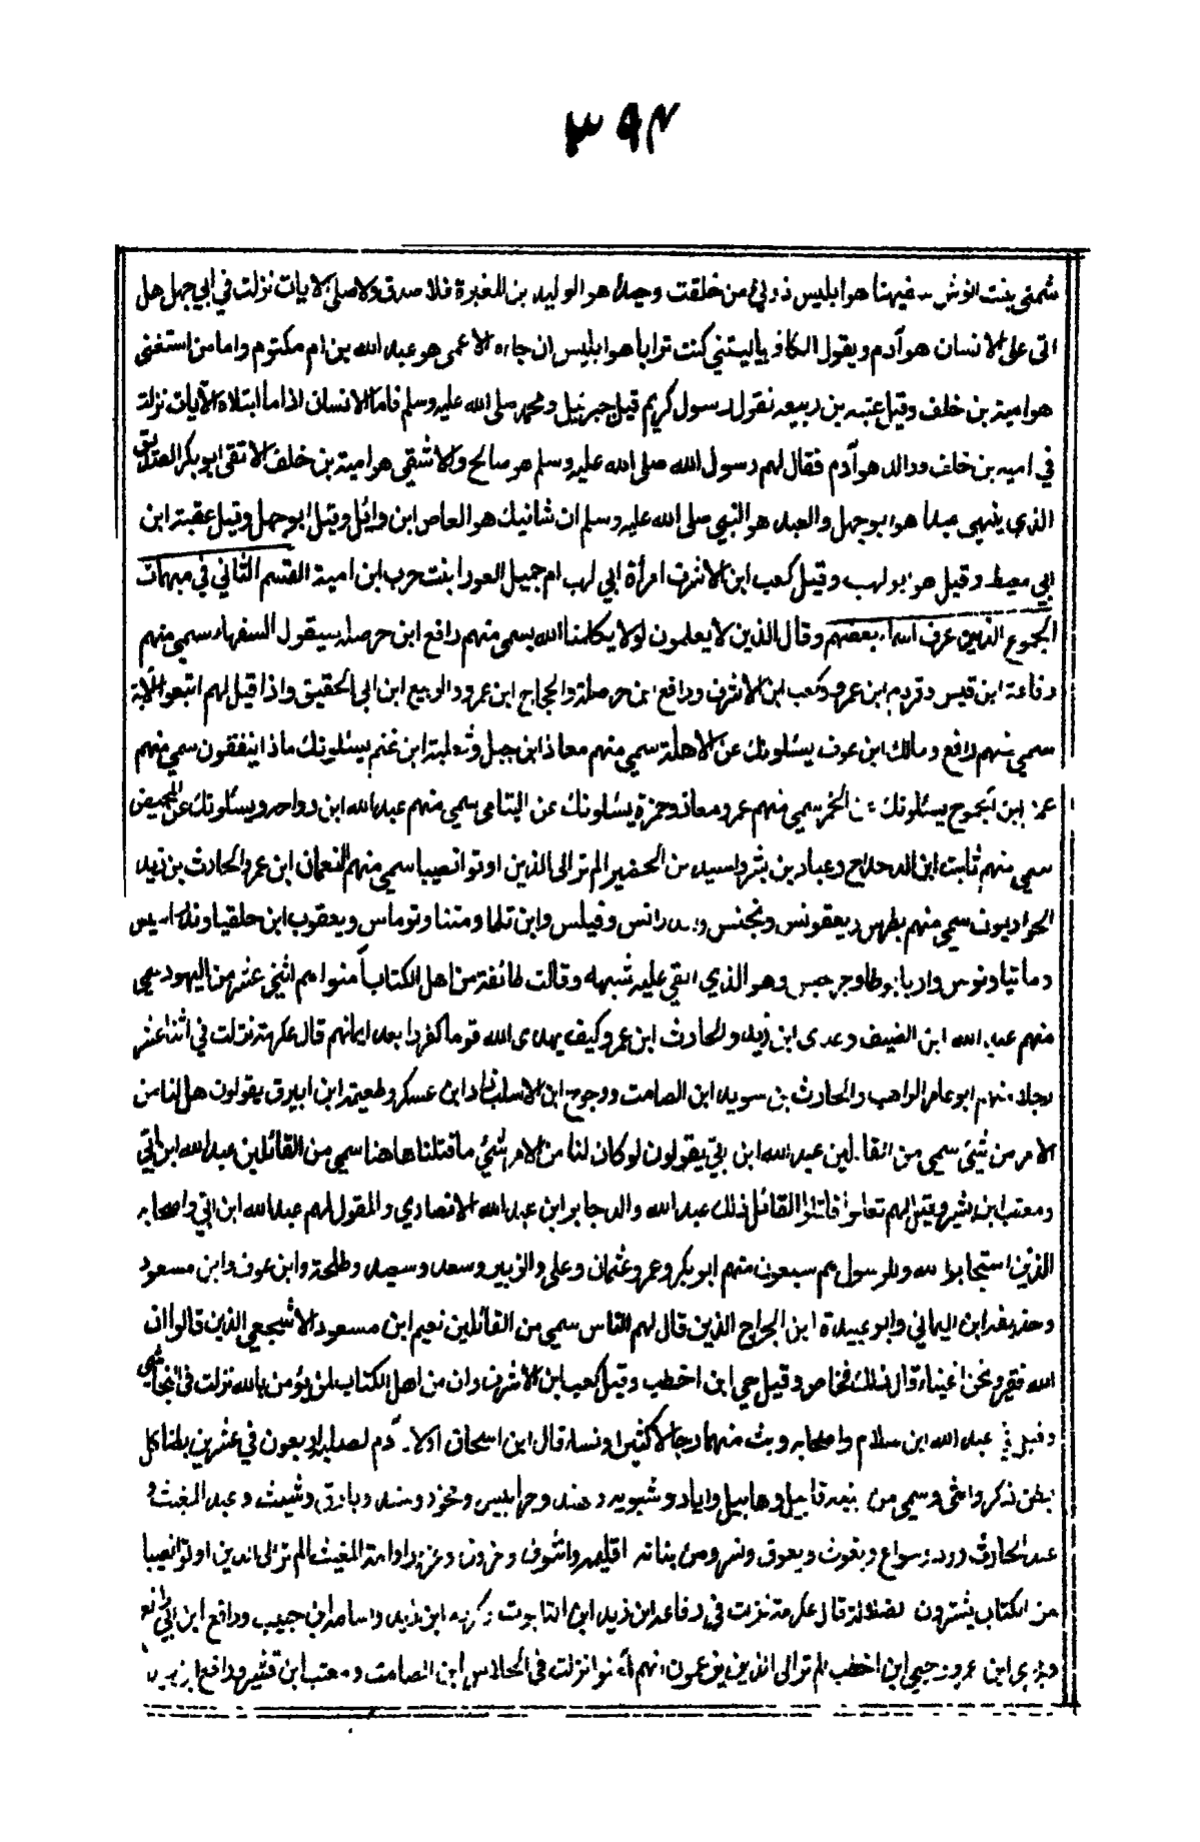 ٣٩٤
شمخى بنت انوش سفيهنا هو ابليس ذرني ومن خلقت وحيدا هو الوليد بن المغيرة فلا صدق ولا صلى الايات نزلت في ابي جهل هل
اتى على الانسان هو آدم ويقول الكافر ياليتني كنت ترابا هو ابليس ان جاءه الاعمى هو عبد الله بن ام مكتوم واما من استغنى
هو امية بن خلف وقيل عتبه بن ربيعه نقول رسول كريم قيل جبرئيل ومحمد صلى الله عليه وسلم فاما الانسان اذا ما ابتلاه الآيات نزلت
في اميه بن خلف ووالد هو آدم فقال لهم رسول الله صلى الله عليه وسلم هو صالح والاشقى هو امية بن خلف الاتقى ابو بكر الصديق
الذي ينهى عبدا هو ابو جهل والعبد هو النبي صلى الله عليه وسلم ان شانيك هو العاص ابن وائل وقيل ابو جهل وقيل عقبة ابن
ابي معيط وقيل هو بو لهب وقيل كعب ابن الاشرف امرأة ابي لهب ام جميل العورا بنت حرب ابن امية القسم الثاني في مبهمات
الجموع الذين عرف اسماء بعضهم وقال الذين لا يعلمون لولا يكلمنا الله يسمى منهم رافع ابن حرملة سيقول السفهاء سمي منهم
رفاعة ابن قيس وقردم ابن عمرو وكعب ابن الاشرف ورافع ابن حرملة والحجاج ابن عمرو والربيع ابن ابي الحقيق واذا قيل لهم اتبعوا الآية
سمي منهم رافع ومالك ابن عوف يسئلونك عن الاهلة سمي منهم معاذ ابن جبل وثعلبة ابن غنم يسئلونك ماذا ينفقون سمي منهم
عمرو ابن الجموح يسئلونك عن الخمر سمي منهم عمر ومعاذ وحمزة يسئلونك عن اليتامى سمي منهم عبد الله ابن رواحه ويسئلونك عن المحيض
سمي منهم ثابت ابن الدحداح وعباد بن بشر واسيد بن الحضير الم تر الى الذين اوتوا نصيبا سمي منهم النعمان ابن عمرو والحارث بن زيد
الحواريون سمي منهم بطرس ويعقونس ونجنس وفيلس وابن تلما ومتنا وتوماس ويعقوب ابن حلقيا
وهو الذي القي عليه شبهه وقالت طائفة من اهل الكتاب آمنوا هم اثنى عشر من اليهود سمي
منهم عبد الله ابن الضيف وعدى ابن زيد والحارث ابن عمرو كيف يهدى الله قوما كفروا بعد ايمانهم قال عكرمة نزلت في اثنا عشر
رجلا منهم ابو عامر الراهب والحارث بن سويد ابن الصامت ووحوح ابن الاسلت زاد ابن عسكر وطعيمة ابن ابيرق يقولون هل لنا من
الامر من شيئ سمي من القائلين عبد الله ابن ابي يقولون لو كان لنا من الامر شيئ ما قتلنا هاهنا سمي من القائلين عبد الله ابن ابي
ومعتب ابن قشير وقيل لهم تعالوا قاتلوا القائل ذلك عبد الله والد جابر ابن عبد الله الانصاري والمقول لهم عبد الله ابن ابي واصحابه
الذين استجابوا لله وللرسول هم سبعون منهم ابو بكر وعمر وعثمان وعلي والزبير وسعد وسعيد وطلحة وابن عوف وابن مسعود
وحذيفه ابن اليماني وابو عبيدة ابن الجراح الذين قال لهم الناس سمي من القائلين نعيم ابن مسعود الاشجعي الذين قالوا ان
الله فقير ونحن اغنياء قال ذلك فنحاص وقيل حي ابن اخطب وقيل كعب ابن الاشرف وان من اهل الكتاب لمن يؤمن بالله نزلت في النجاشي
وقيل في عبد الله ابن سلام واصحابه وبث منهما رجالا كثيرا ونساء قال ابن اسحاق اولاد آدم لصلبه اربعون في عشرين بطنا كل
بطن ذكر وانثى وسمي من بنيه قابيل وهابيل واياد وشبويه وهند وحرابيس وفخور وسند وبارق وشيث وعبد المغيث و
عبد الحارث وود وسواع ويغوث ويعوق ونسر ومن بناته اقليمه واشوف وامة المغيث الم تر الى الذين اوتوا نصيبا
من الكتاب يشترون الضلالة قال عكرمة نزلت في رفاعه ابن زيد ابن التابوت وكردم ابن زيد واسامه ابن حبيب ورافع ابن ابي رافع
وبحري ابن عمرو وحيي ابن اخطب الم تر الى الذين يزعمون انهم آمنوا نزلت في الجلاس ابن الصامت ومعتب ابن قشير ورافع ابن زيد